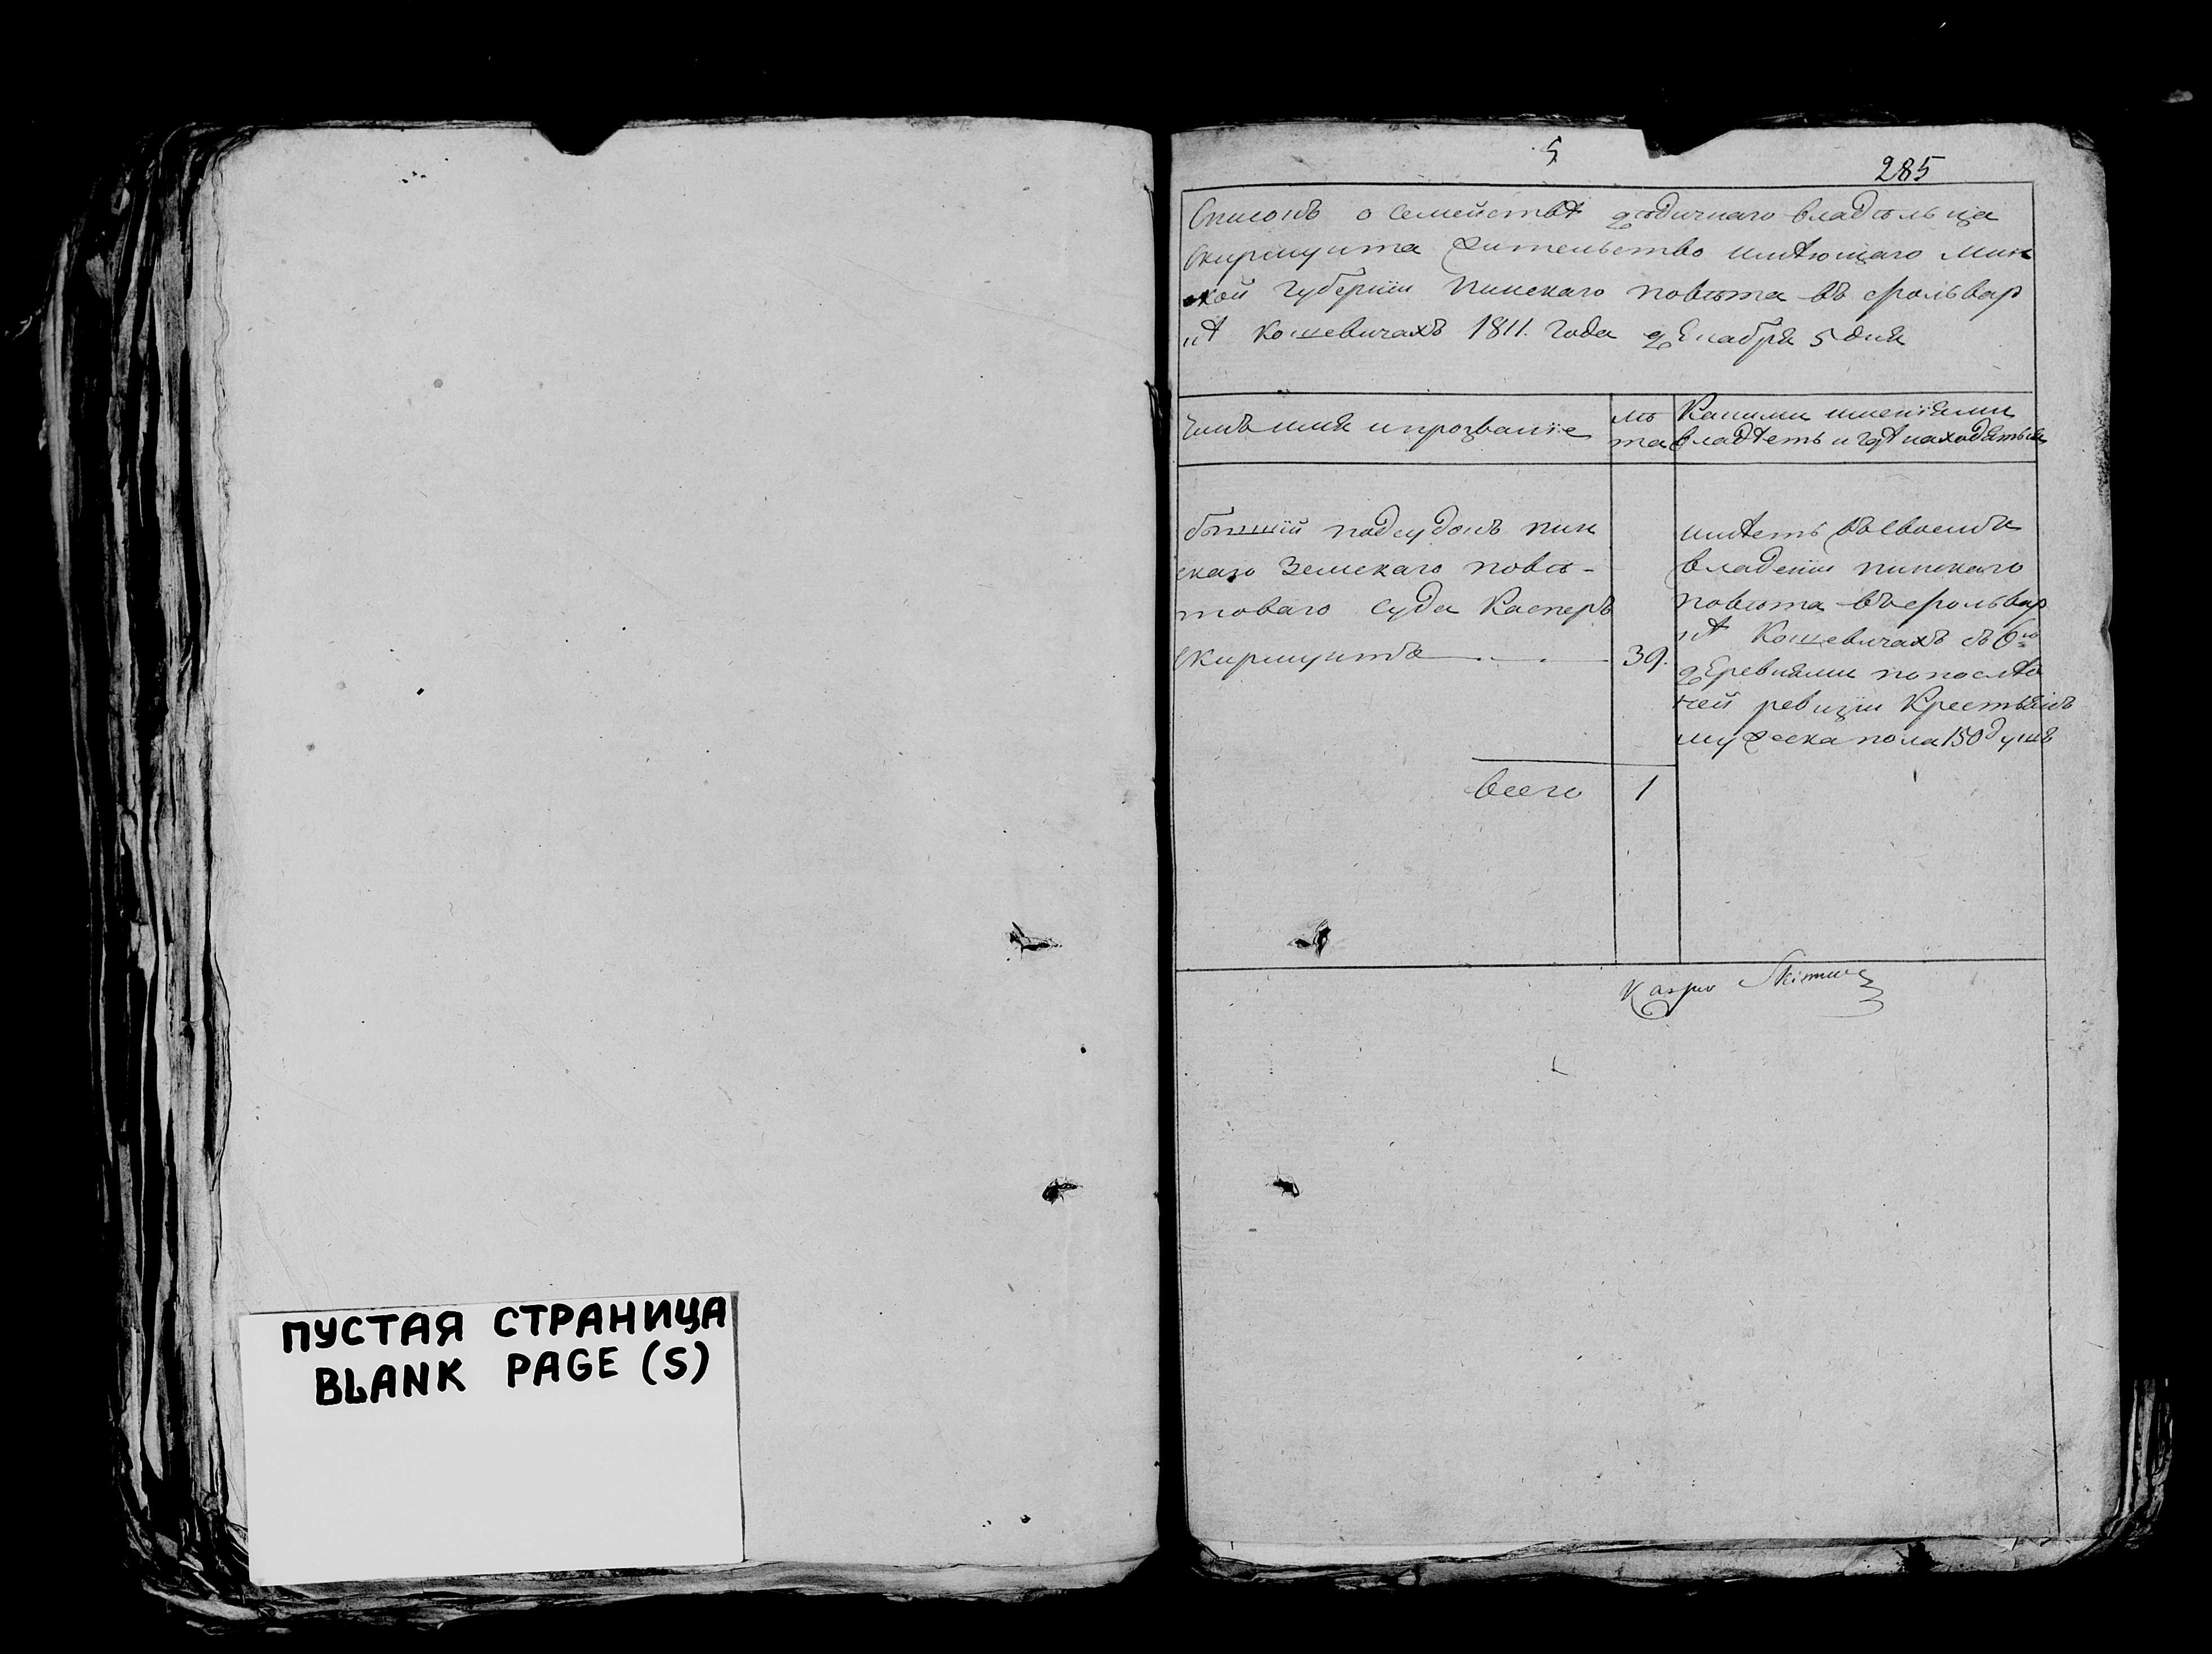 ПУСТАЯ СТРАНИЦА
BLANK PAGE (S)
5
285
Списокъ о семействѣ дѣдичнаго владѣльца
Скирмунта жительство имѣющаго Мин
ской Губернiи Пинскаго повѣта въ фольвар
кѣ Кошевичахъ 1811. года декабря 5 дня
Чинъ имя и прозванiе
лѣ
та
Какими имѣнiями
владѣетъ и гдѣ находяться
бывшiй подсудокъ пин
скаго Земскаго повѣ-
товаго суда Касперъ
Скирмунтъ
39.
имѣетъ въ своемъ
владенiи пинскаго
повѣта въ фольвар
кѣ Кошевичахъ съ 6ю
деревнями по послѣд
ней ревизiи Крестьянъ
мужеска пола 150 душъ
всего 1
Kasper Skirmunt